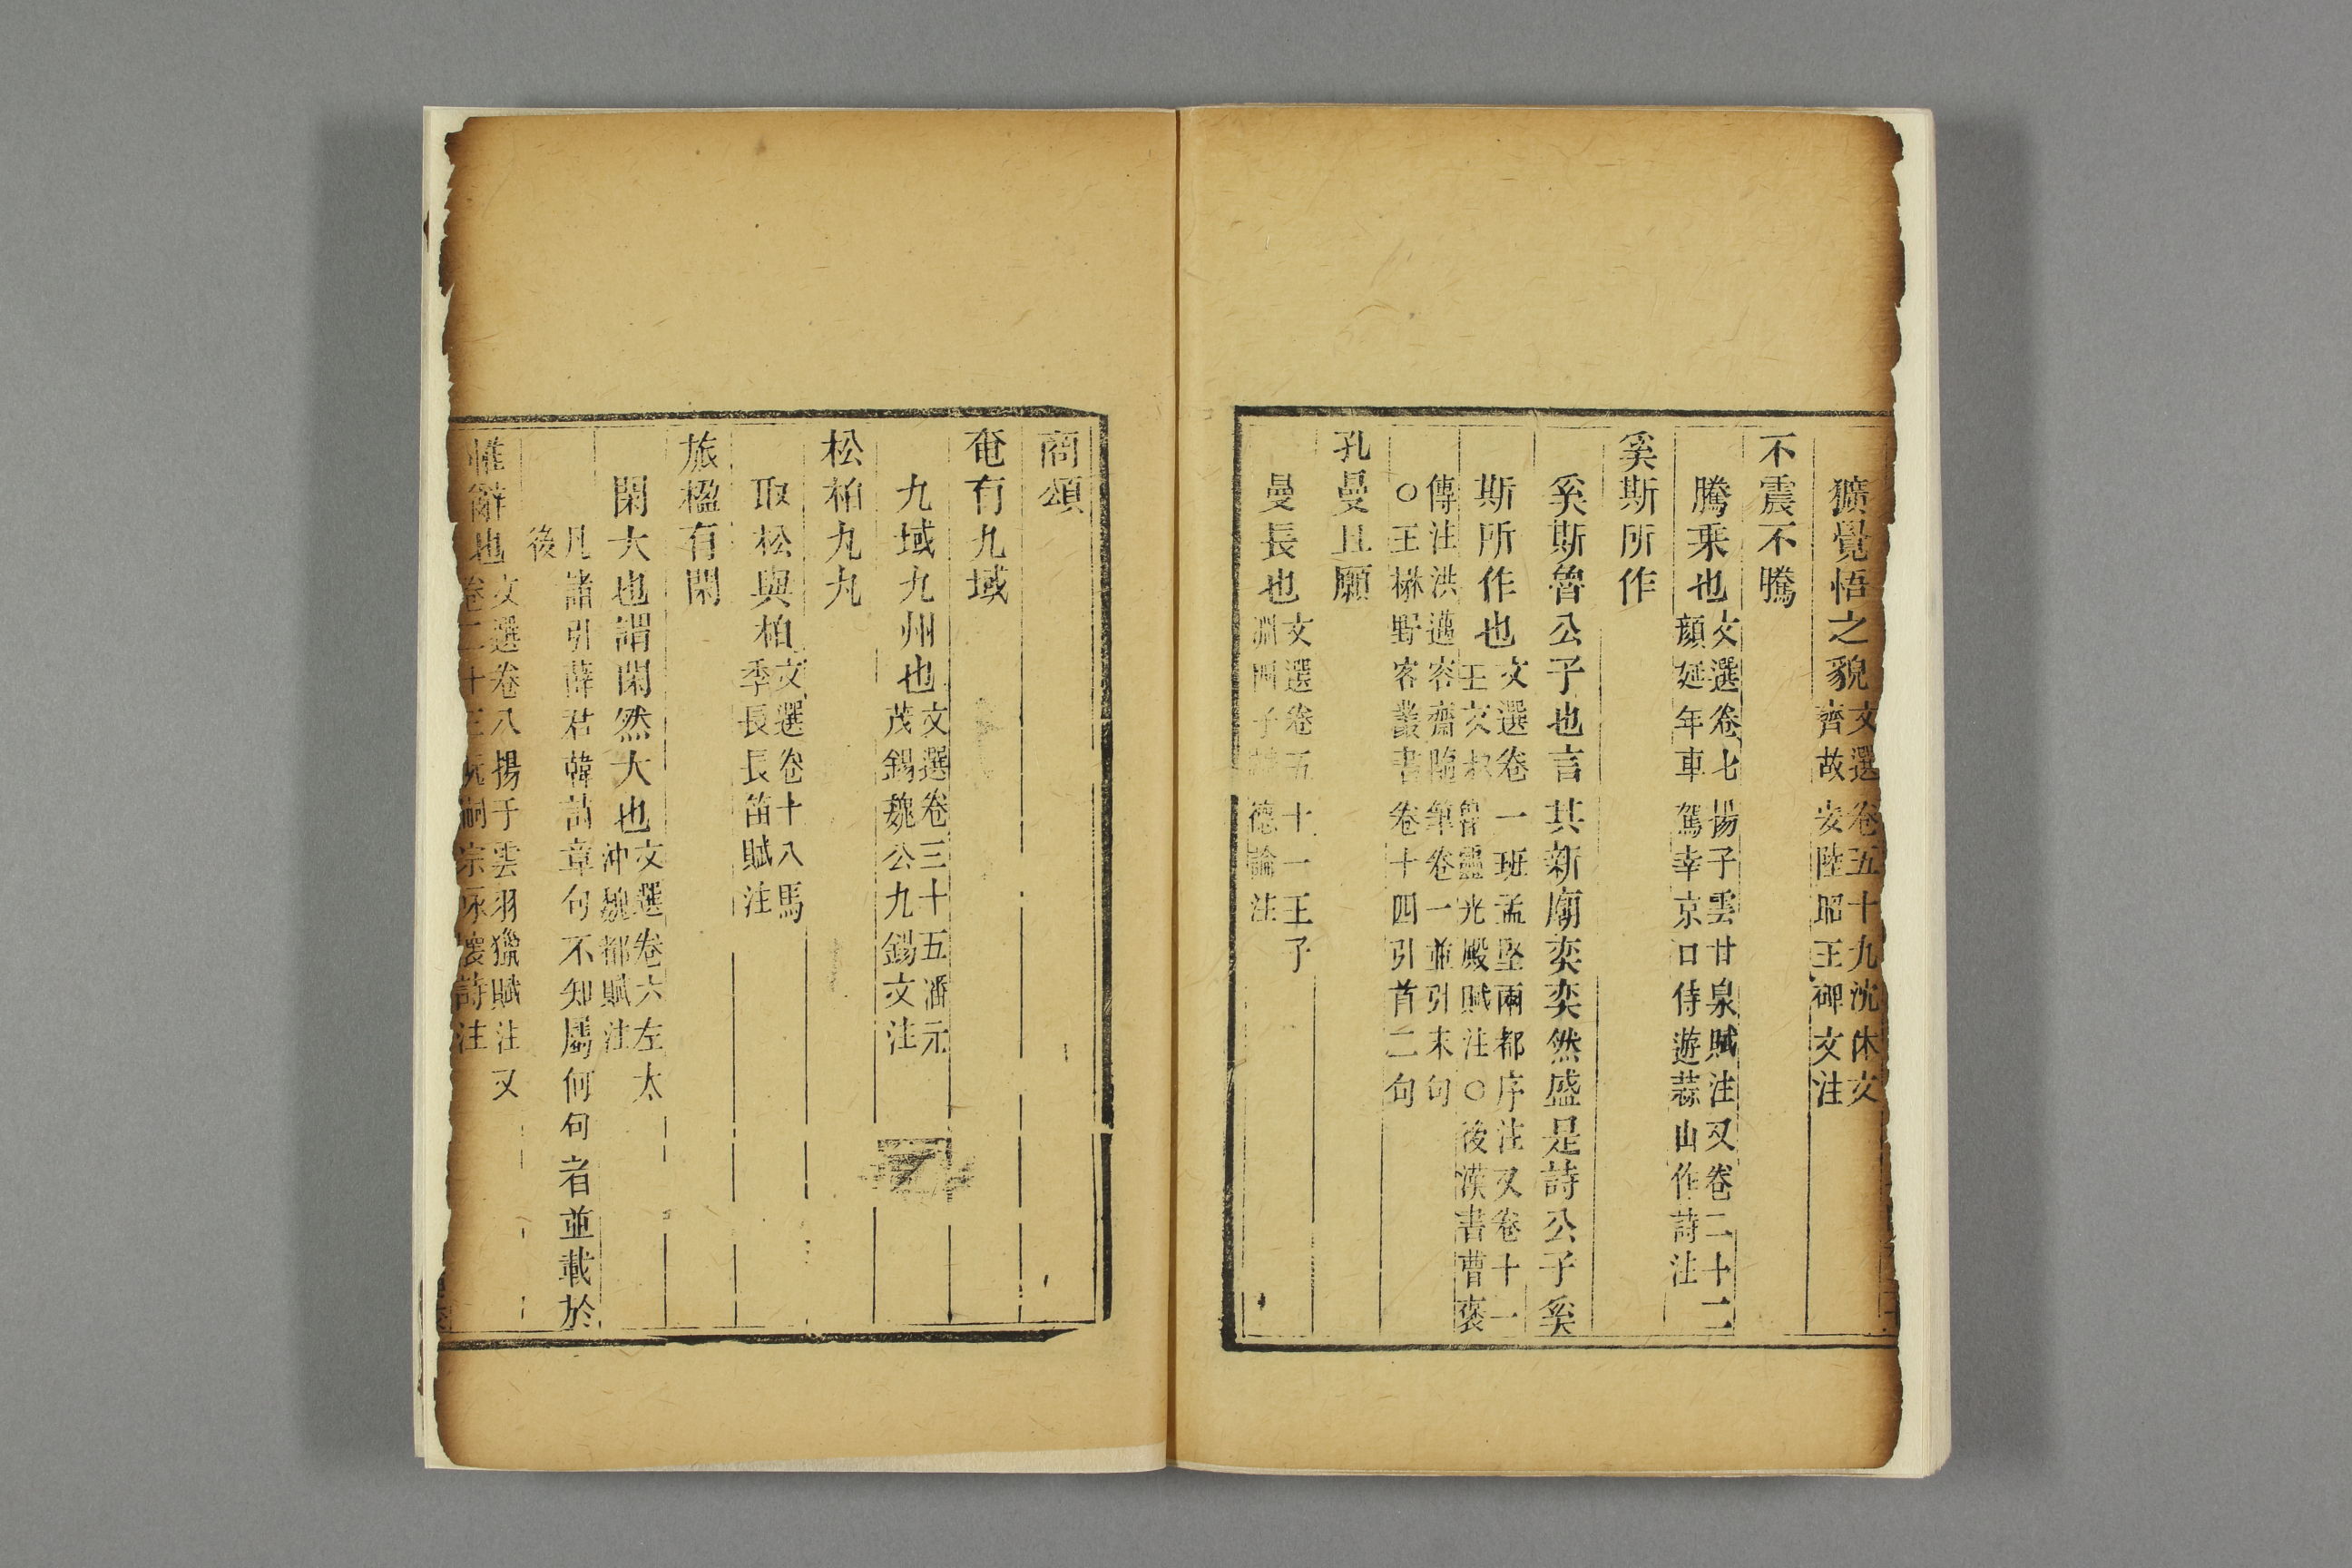 獷覺悟之貌文選卷五十九沈休文
齊故安陸昭王碑文注
不震不騰
騰乘也文選卷七揚子雲甘泉賦注又卷二十二
顏延年車駕幸京口侍遊蒜山作詩注
奚斯所作
奚斯魯公子也言其新廟奕奕然盛是詩公子奚
斯所作也文選卷一班孟堅兩都序注又卷十一
王文考魯靈光殿賦注○後漢書曹褒
傳注洪邁容齋隨筆卷一並引末句
○王楙野客叢書卷十四引首二句
孔曼且願
曼長也文選卷五十一王子
淵四子講德論注
商頌
奄有九域
九域九州也文選卷三十五潘元
茂錫魏公九錫文注
松柏九九
取松與柏文選卷十八馬
季長長笛賦注
旅楹有閑
閑大也謂閑然大也文選卷六左太
沖魏都賦注
凡諸引薛君韓詩章句不知屬何句者並載於
後
惟辭也文選卷八揚子雲羽獵賦注又
卷二十三阮嗣宗詠懷詩注